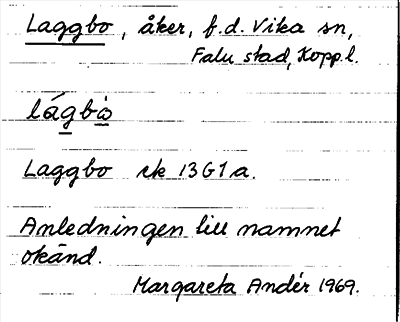 Laggbo, åker, f.d. Vika sn,
Falu stad, Kopp.l.
lágbò
Laggbo rk 13G1a.
Anledningen till namnet
okänd.
Margareta Andér 1969.